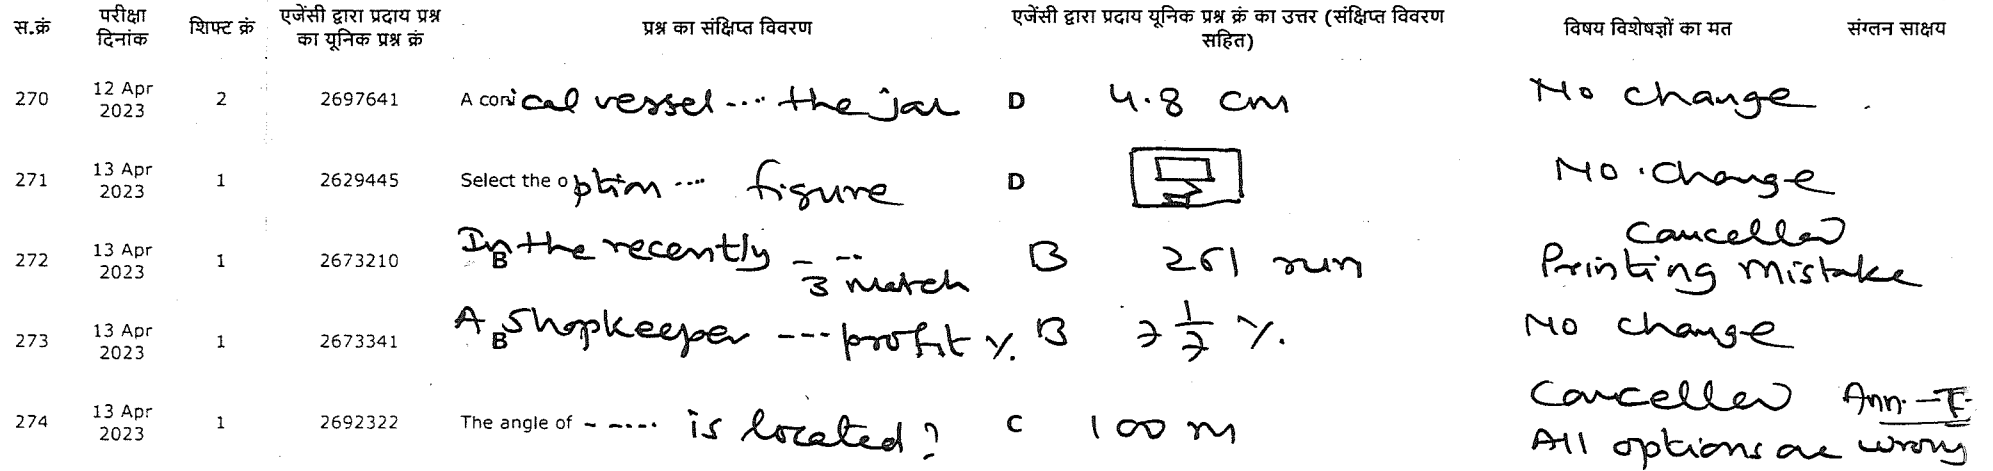 स.क्रं परीक्षा दिनांक शिफ्ट क्रं एजेंसी द्वारा प्रदाय प्रश्न का यूनिक प्रश्न क्रं प्रश्न का संक्षिप्त विवरण एजेंसी द्वारा प्रदाय यूनिक प्रश्न क्रं का उत्तर (संक्षिप्त विवरण सहित) विषय विशेषज्ञों का मत संग्लन साक्षय
270 12 Apr 2023 2 2697641 A conical vessel .... the jar D 4.8 cm No change
271 13 Apr 2023 1 2629445 Select the option .... figure D No change
272 13 Apr 2023 1 2673210 In the recently - .. 3 match B B 261 run Cancelled Printing Mistake
273 13 Apr 2023 1 2673341 A Shopkeeper --- profit %. B B 7 1/7 %. No change
274 13 Apr 2023 1 2692322 The angle of ------ is located? C 100 m Cancelled All options are wrong Ann.-I